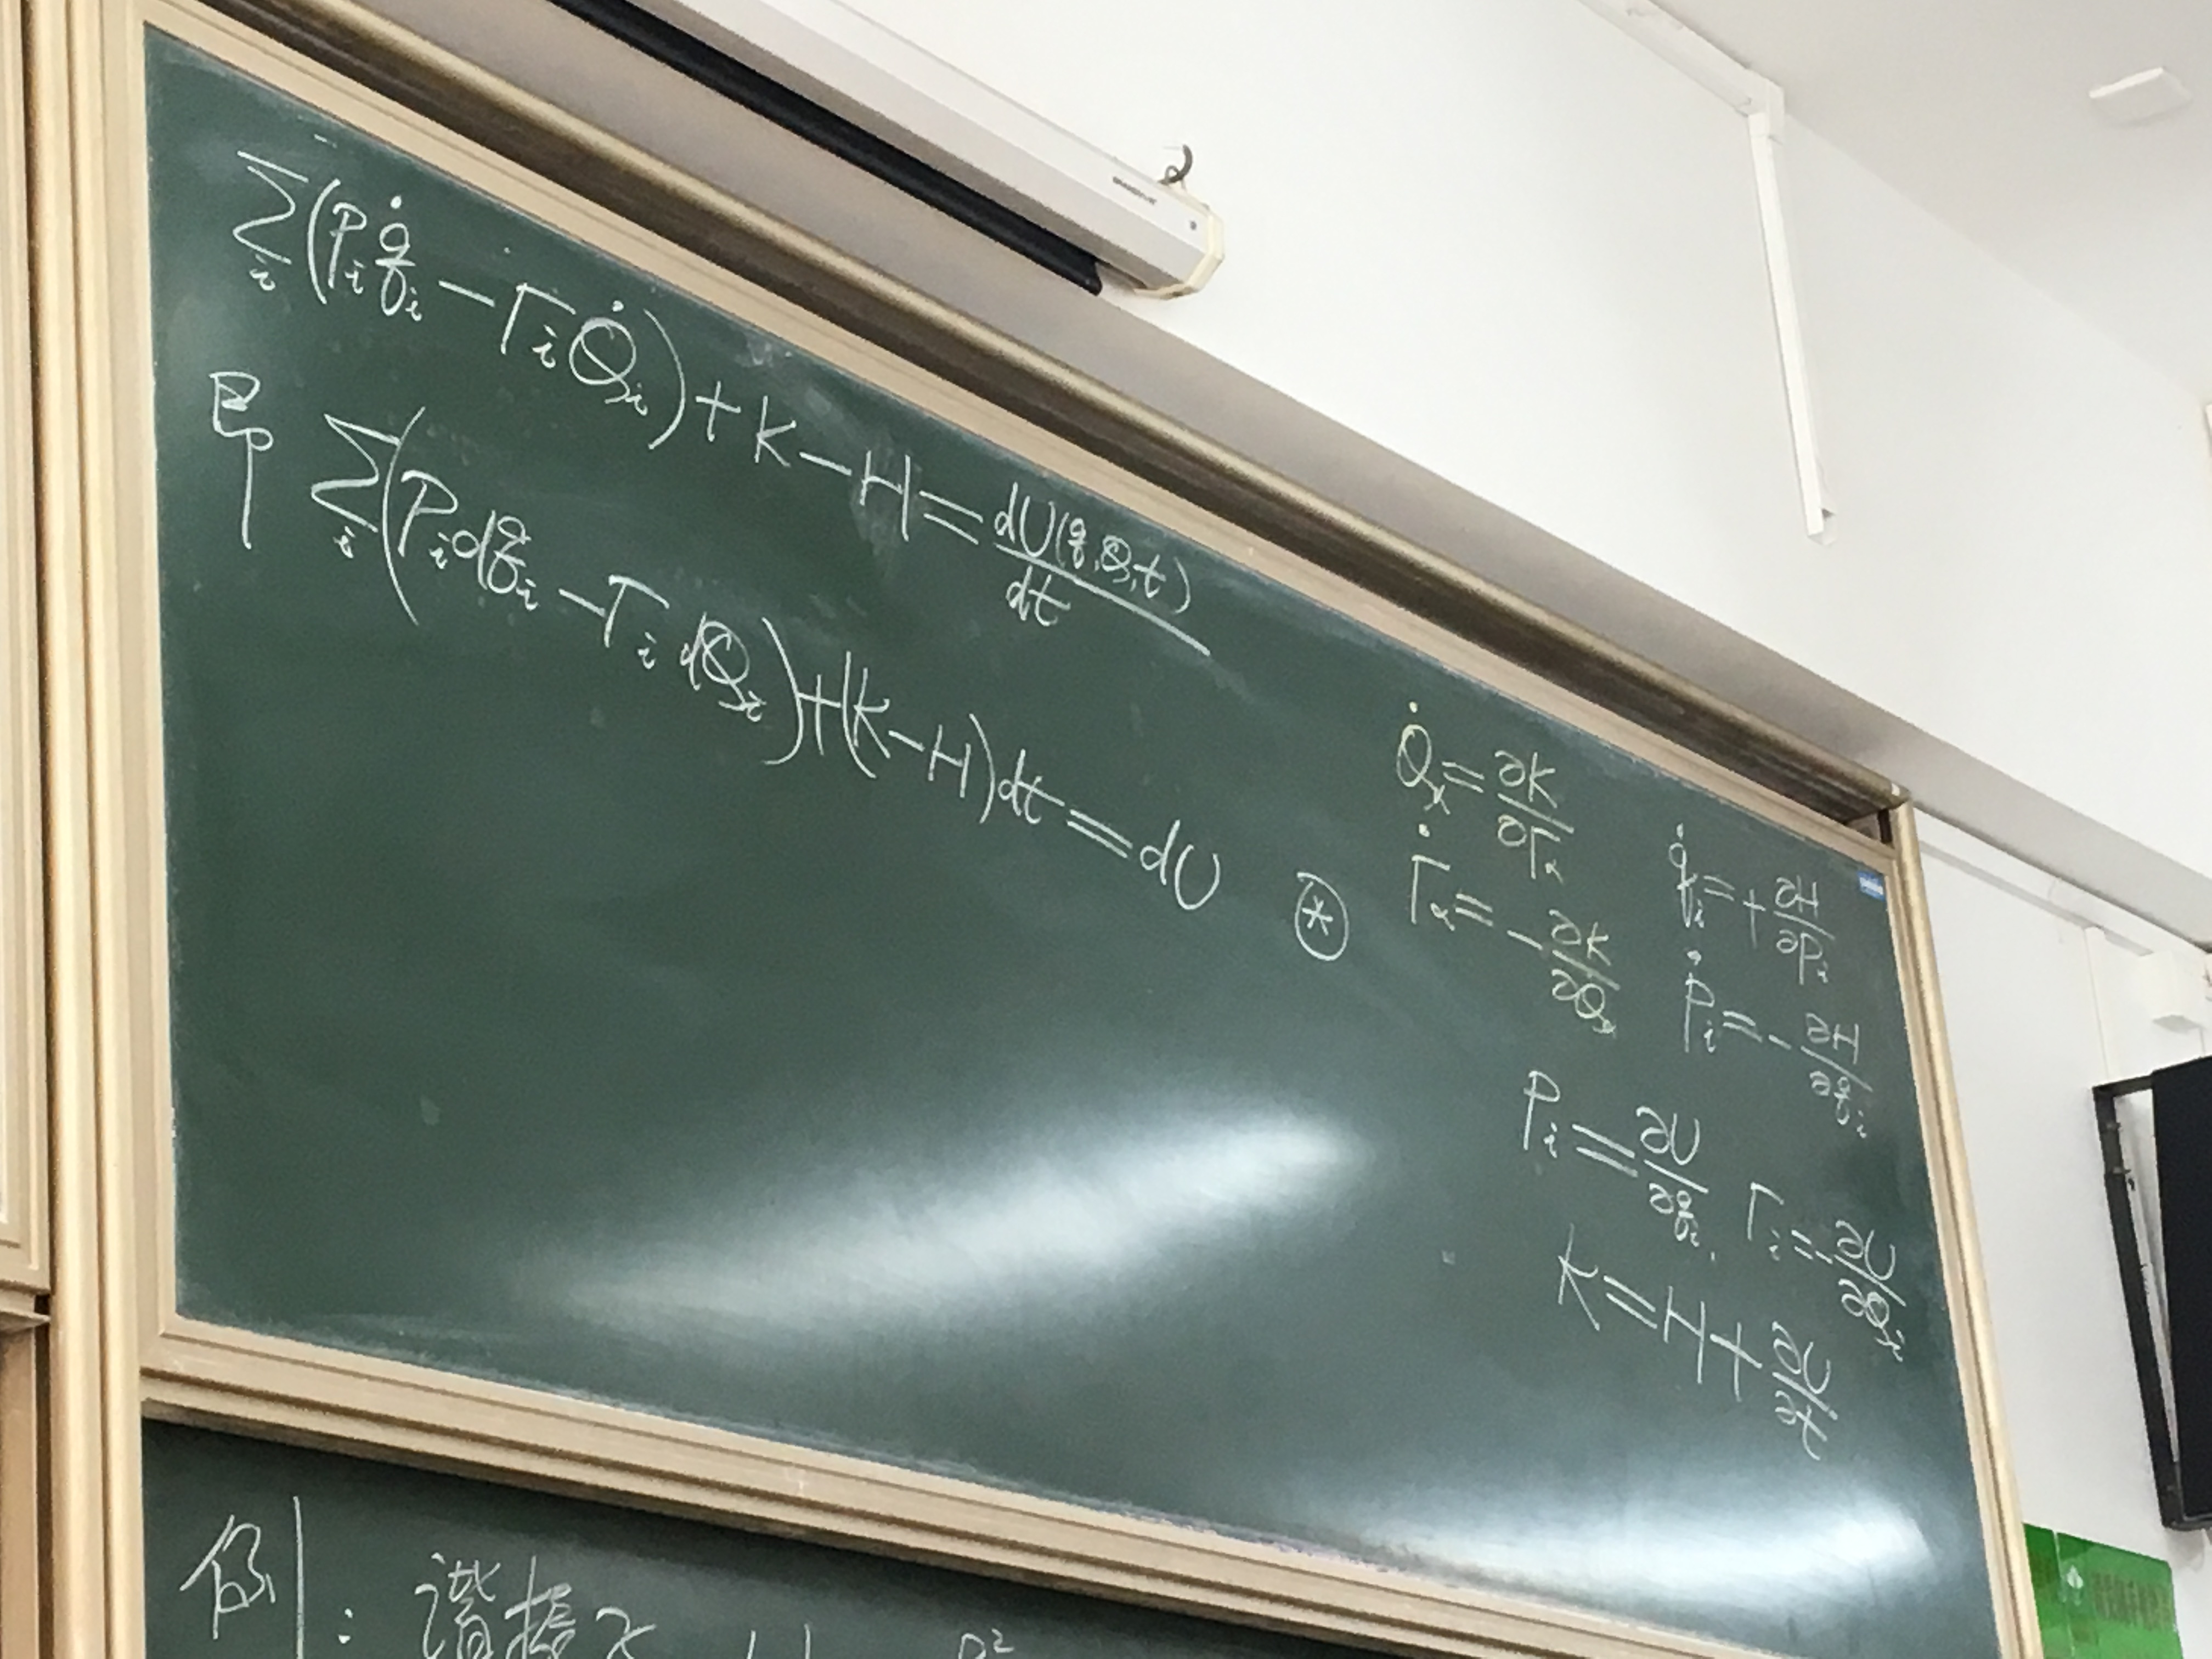 ∑_i (P_i q̇_i − Γ_i Q̇_i) + K − H = dU(q,Q,t)/dt
即 ∑_i (P_i dq_i − Γ_i dQ_i) + (K − H)dt = dU ⊛
Q̇_α = ∂K/∂Γ_α
Γ̇_α = −∂K/∂Q_α
q̇_i = +∂H/∂P_i
Ṗ_i = −∂H/∂q_i
P_i = ∂U/∂q_i, Γ_i = −∂U/∂Q_i
K = H + ∂U/∂t
例: 谐振子